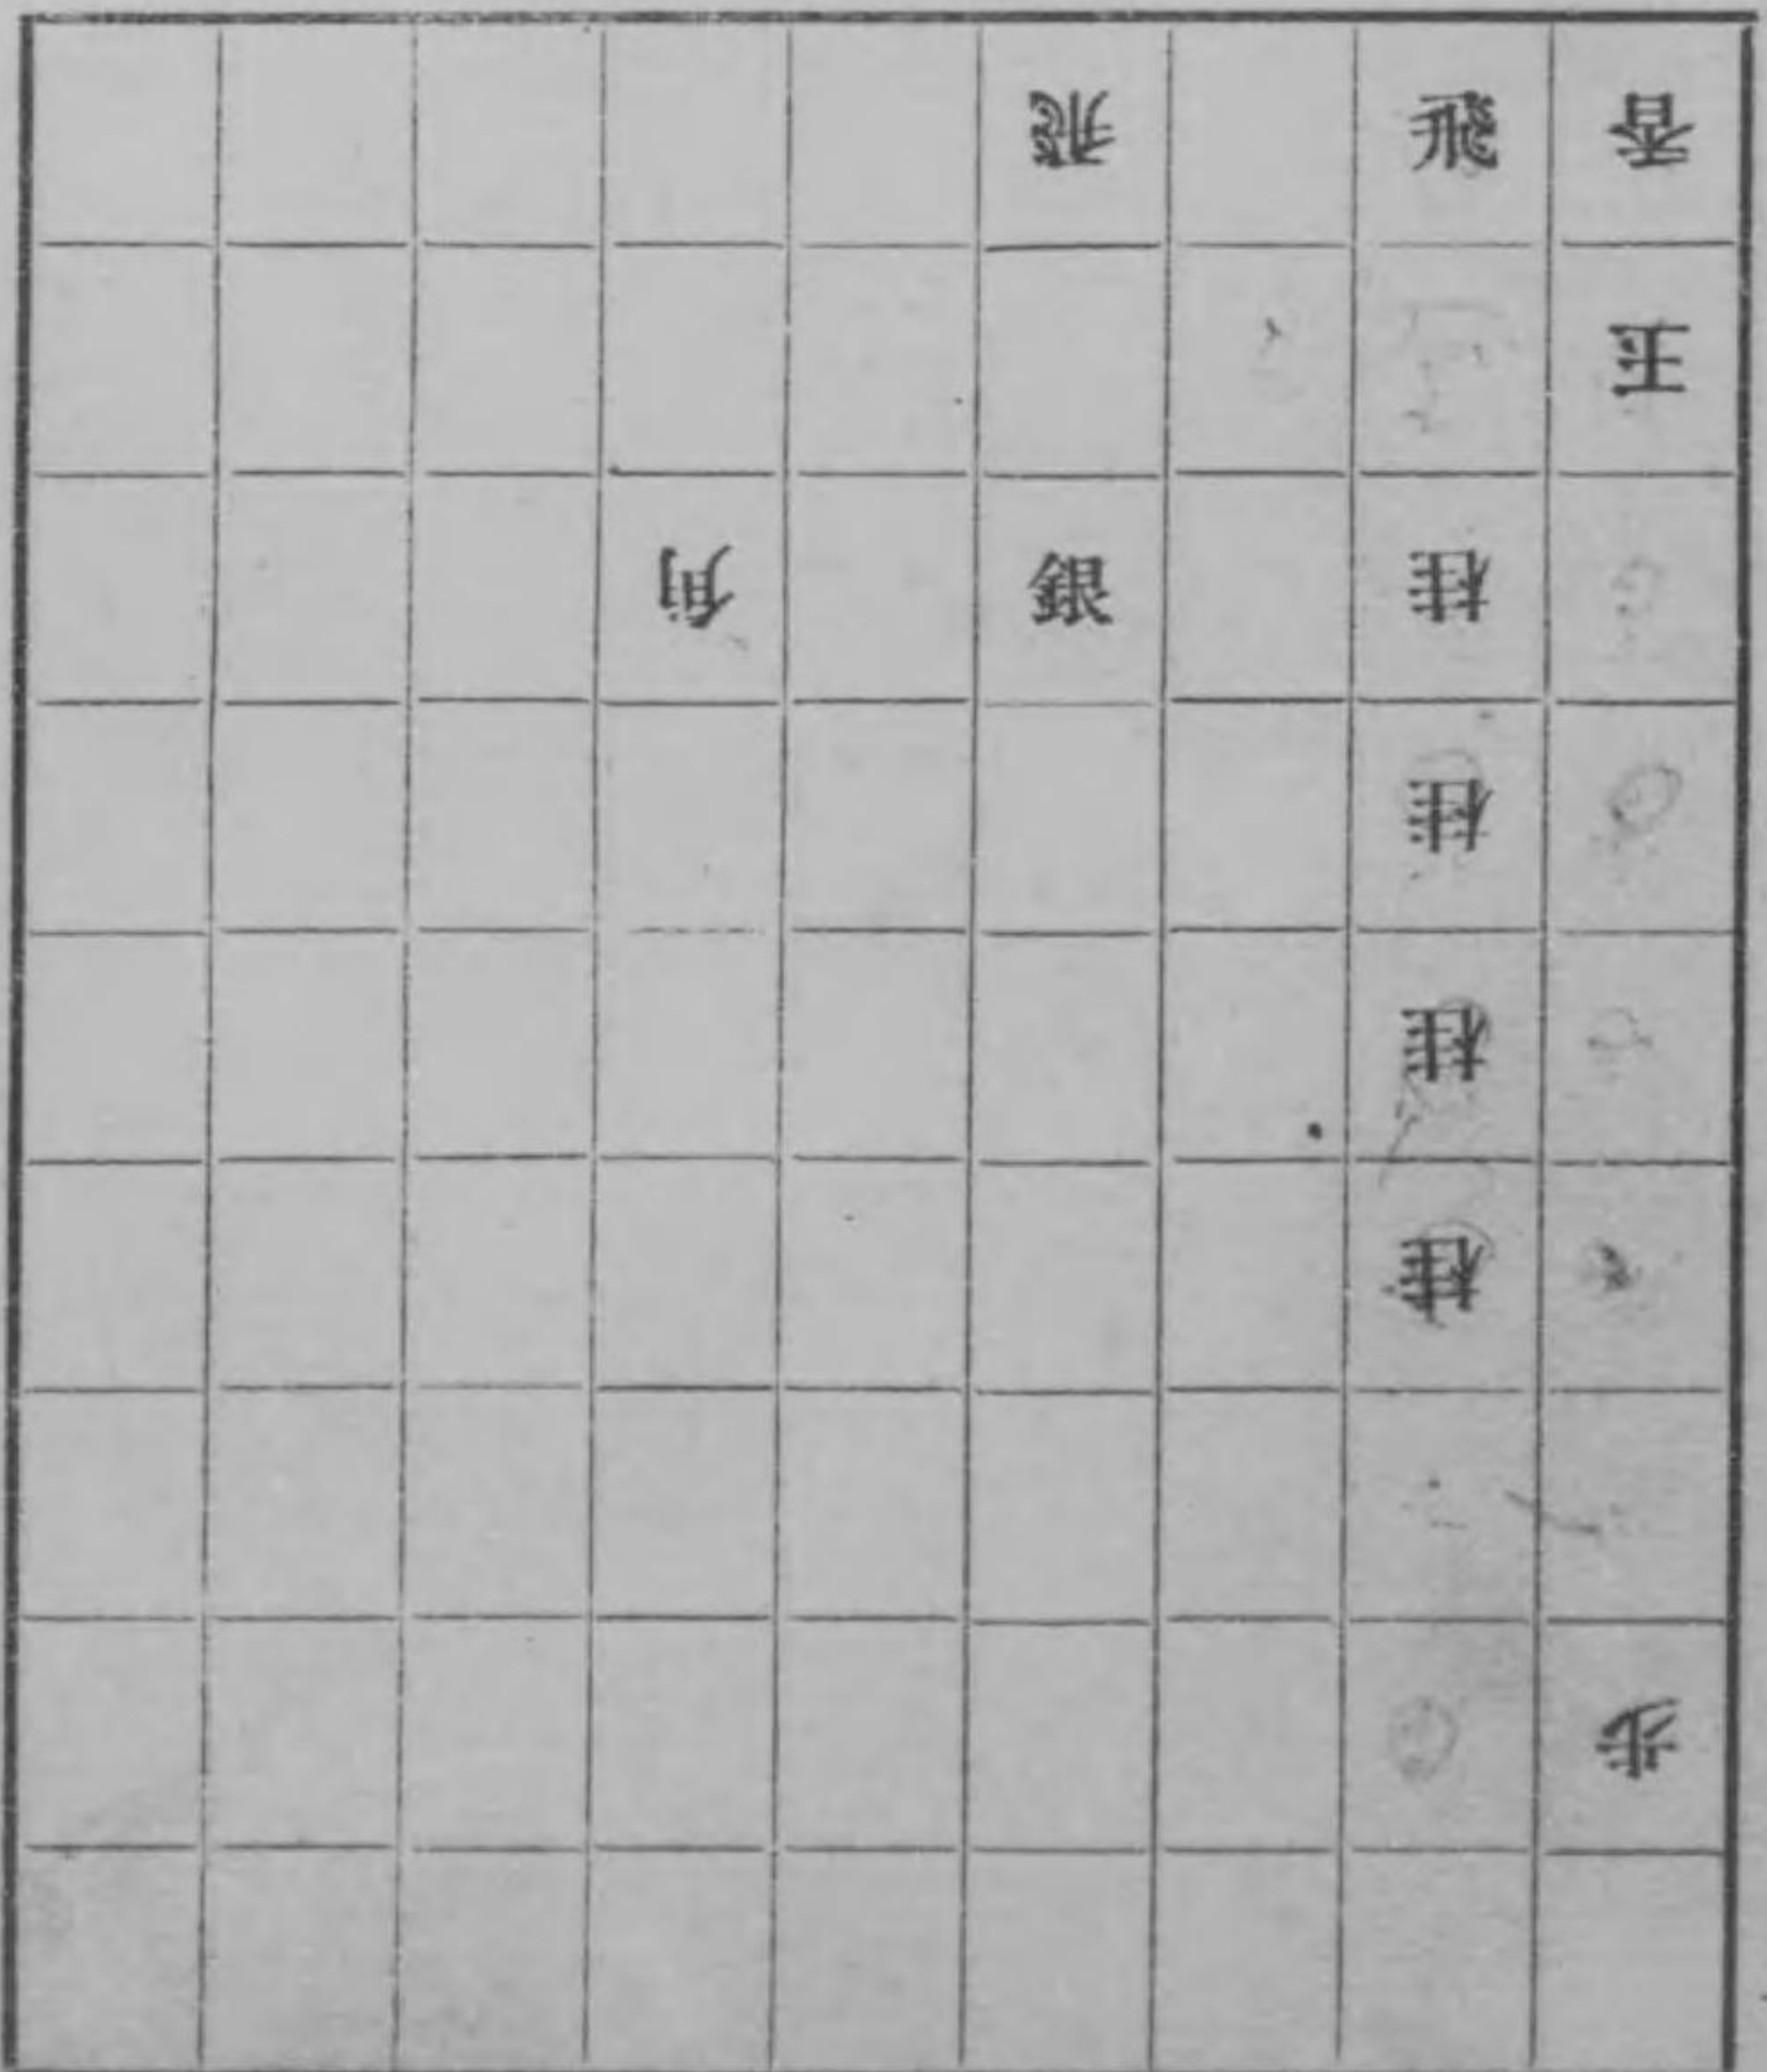 飛 飛 香
玉
角 銀 桂
桂
桂
桂
歩